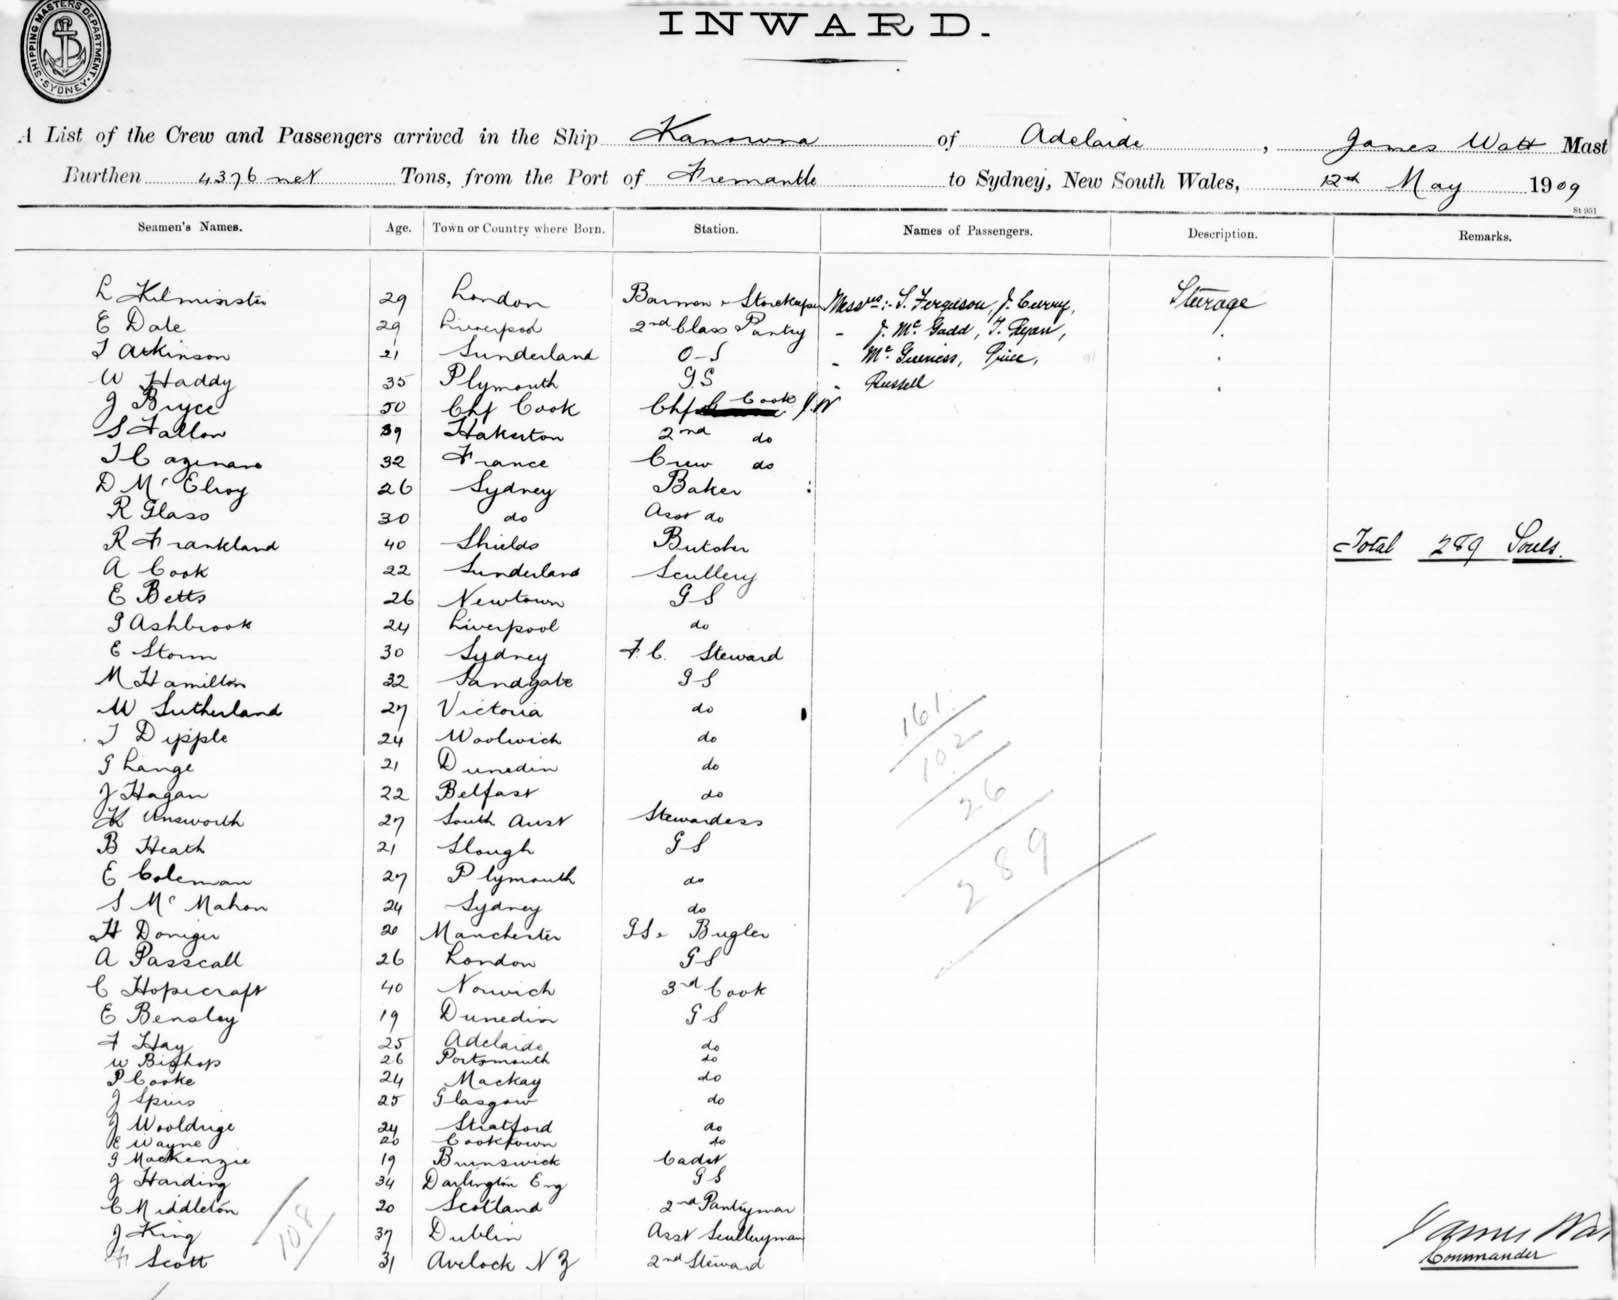 SHIPPING MASTERS DEPARTMENT SYDNEY
INWARD.
A List of the Crew and Passengers arrived in the Ship Kanowna of Adelaide, James Watt Mast
Burthen 4376 net Tons, from the Port of Fremantle to Sydney, New South Wales, 12th May 1909
St 951
Seamen's Names. Age. Town or Country where Born. Station. Names of Passengers. Description. Remarks.
L Kilminister 29 London Barman & Storekeeper Messrs:- S. Ferguson, J. Curry, Steerage
E Date 29 Liverpool 2nd Class Pantry - J. Mc Gadd, T. Ryan, .
T Atkinson 21 Sunderland O-S - Mc Guiness, Price, .
W Haddy 35 Plymouth G.S - Russell .
J Bryce 50 Chf Cook Chf Cook J.W
S Fallon 39 2nd do
32 France Crew do
D Mc Elroy 26 Sydney Baker
R Glass 30 do Asst do
R Frankland 40 Shields Butcher Total 289 Souls.
A Cook 22 Sunderland Scullery
E Betts 26 Newtown G S
G Ashbrook 24 Liverpool do
E Storm 30 Sydney F. C. Steward
M Hamilton 32 Sandgate G S
W Sutherland 27 Victoria do
T Dipple 24 Woolwich do
G Lange 21 Dunedin do
J Hagan 22 Belfast do
K Unsworth 27 South Aust Stewardess
B Heath 21 Slough G S
E Coleman 27 Plymouth do
S Mc Mahon 24 Sydney do
H Doniger 20 Manchester GS & Bugler
A Passcall 26 London G S
C Hopscraft 40 Norwich 3rd Cook
E Bensley 19 Dunedin G S
F Hay 25 Adelaide do
W Bishop 26 Portsmouth do
P Cooke 24 Mackay do
J Spiers 25 Glasgow do
J Wooldrige 24 Stratford do
E Wayne 20 Cooktown do
G Mackenzie 19 Brunswick Cadet
J Harding 34 Darlington Eng G S
C Middleton 20 Scotland 2nd Pantryman
J King 37 Dublin Asst Sculleryman
F Scott 31 Avelock N Z 2nd Steward
161
102
26
289
108
James Wat
Commander